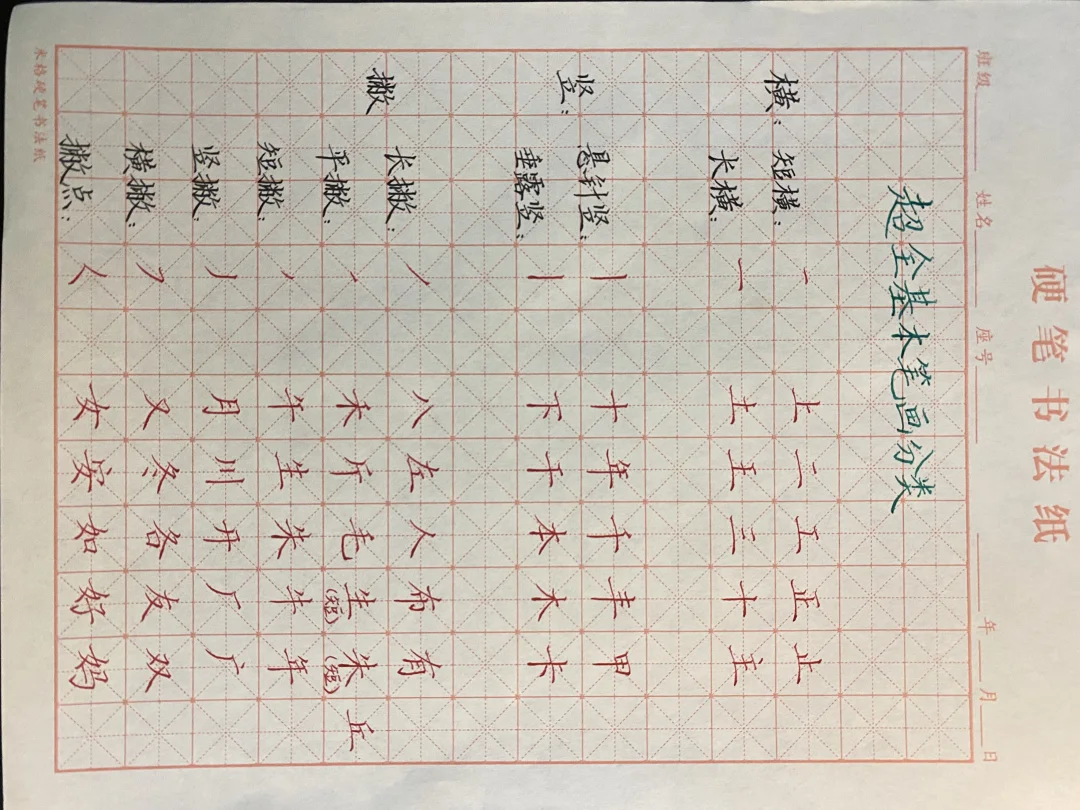 硬笔书法纸
班级 姓名 座号 年 月 日
超全基本笔画分类
横：短横：一 上 二 工 正 止
长横：一 土 王 三 十 主
竖：悬针竖：丨 十 年 千 丰 甲
垂露竖：丨 下 干 本 木 卡
撇 长撇：丿 八 左 人 布 有
平撇：丿 禾 斤 毛 生(短) 朱(短) 丘
短撇：丿 午 生 朱 牛 年
竖撇：丿 月 川 开 厂 广
横撇：㇇ 又 冬 各 友 双
撇点：𡿨 女 安 如 好 妈
米格硬笔书法纸